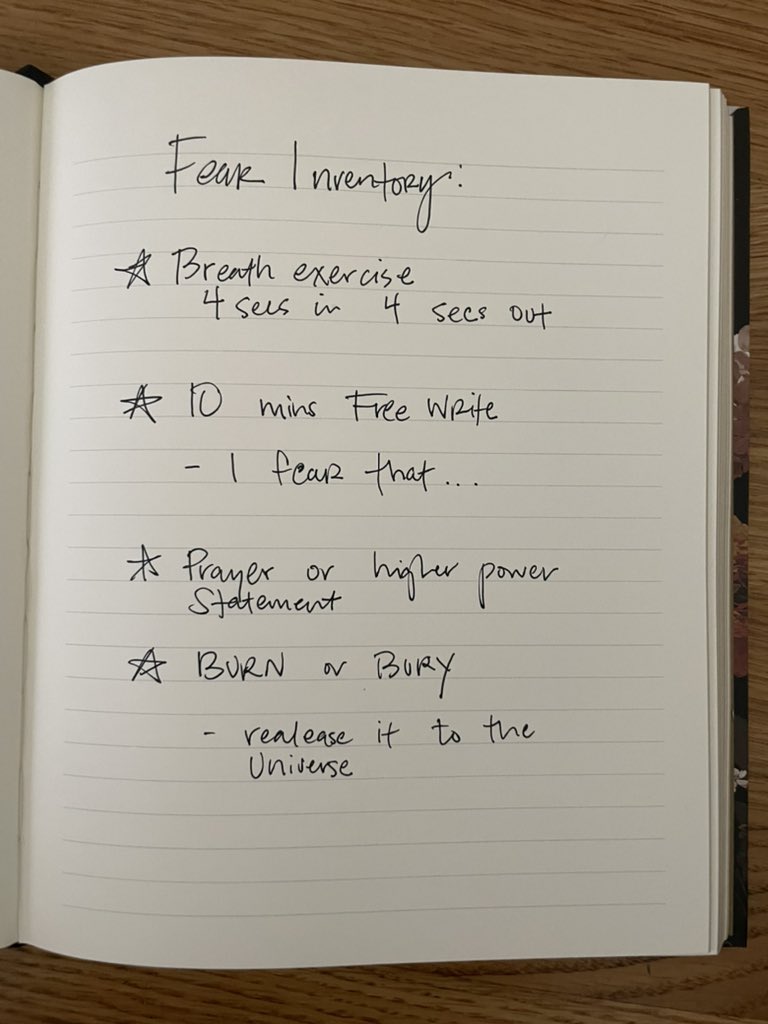 Fear Inventory:
☆ Breath exercise
4 secs in 4 secs out
☆ 10 mins Free Write
- I fear that...
☆ Prayer or higher power
Statement
☆ BURN or BURY
- realease it to the
Universe